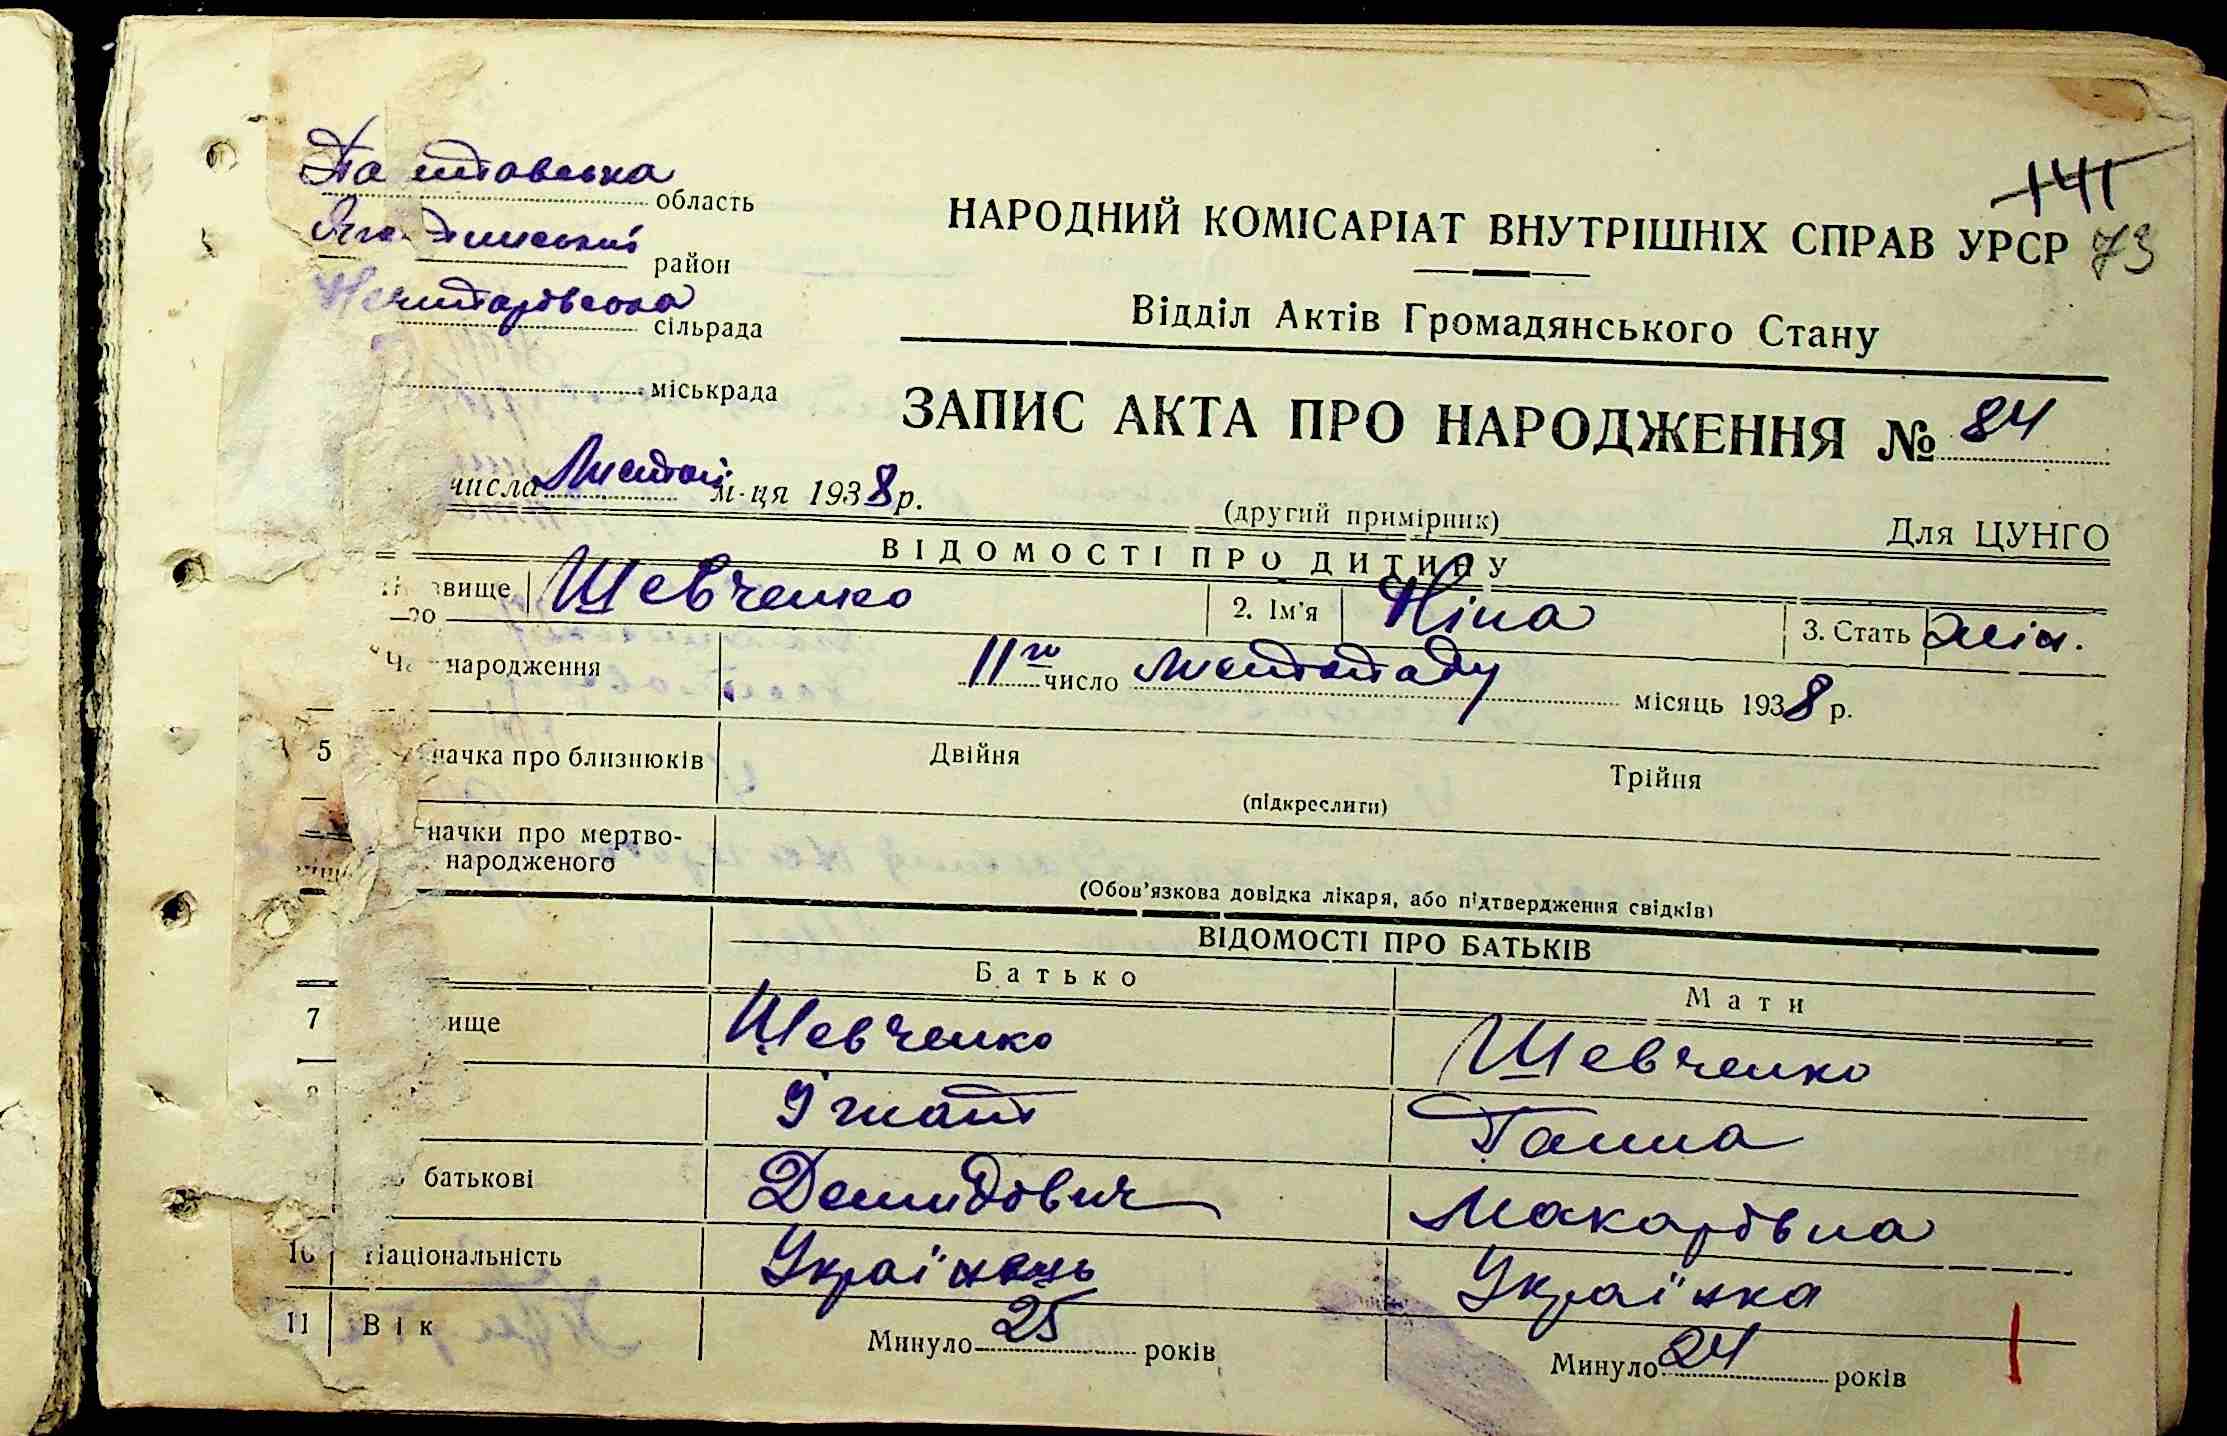 Полтавська область
район
сільрада
міськрада
НАРОДНИЙ КОМІСАРІАТ ВНУТРІШНІХ СПРАВ УРСР
141
73
Відділ Актів Громадянського Стану
ЗАПИС АКТА ПРО НАРОДЖЕННЯ № 84
числа Листоп. м-ця 1938 р.
(другий примірник)
Для ЦУНГО
ВІДОМОСТІ ПРО ДИТИНУ
Шевченко
2. Ім'я Ніна
3. Стать жін.
народження
11го число листопаду місяць 1938 р.
5
начка про близнюків
Двійня
Трійня
(підкреслити)
начки про мертво-
народженого
(Обов'язкова довідка лікаря, або підтвердження свідків)
ВІДОМОСТІ ПРО БАТЬКІВ
Батько
Мати
7
ище
Шевченко
Шевченко
8
Ігнат
Ганна
батькові
Демидович
Макарівна
10 Національність
Українець
Українка
11 Вік
Минуло 25 років
Минуло 24 років